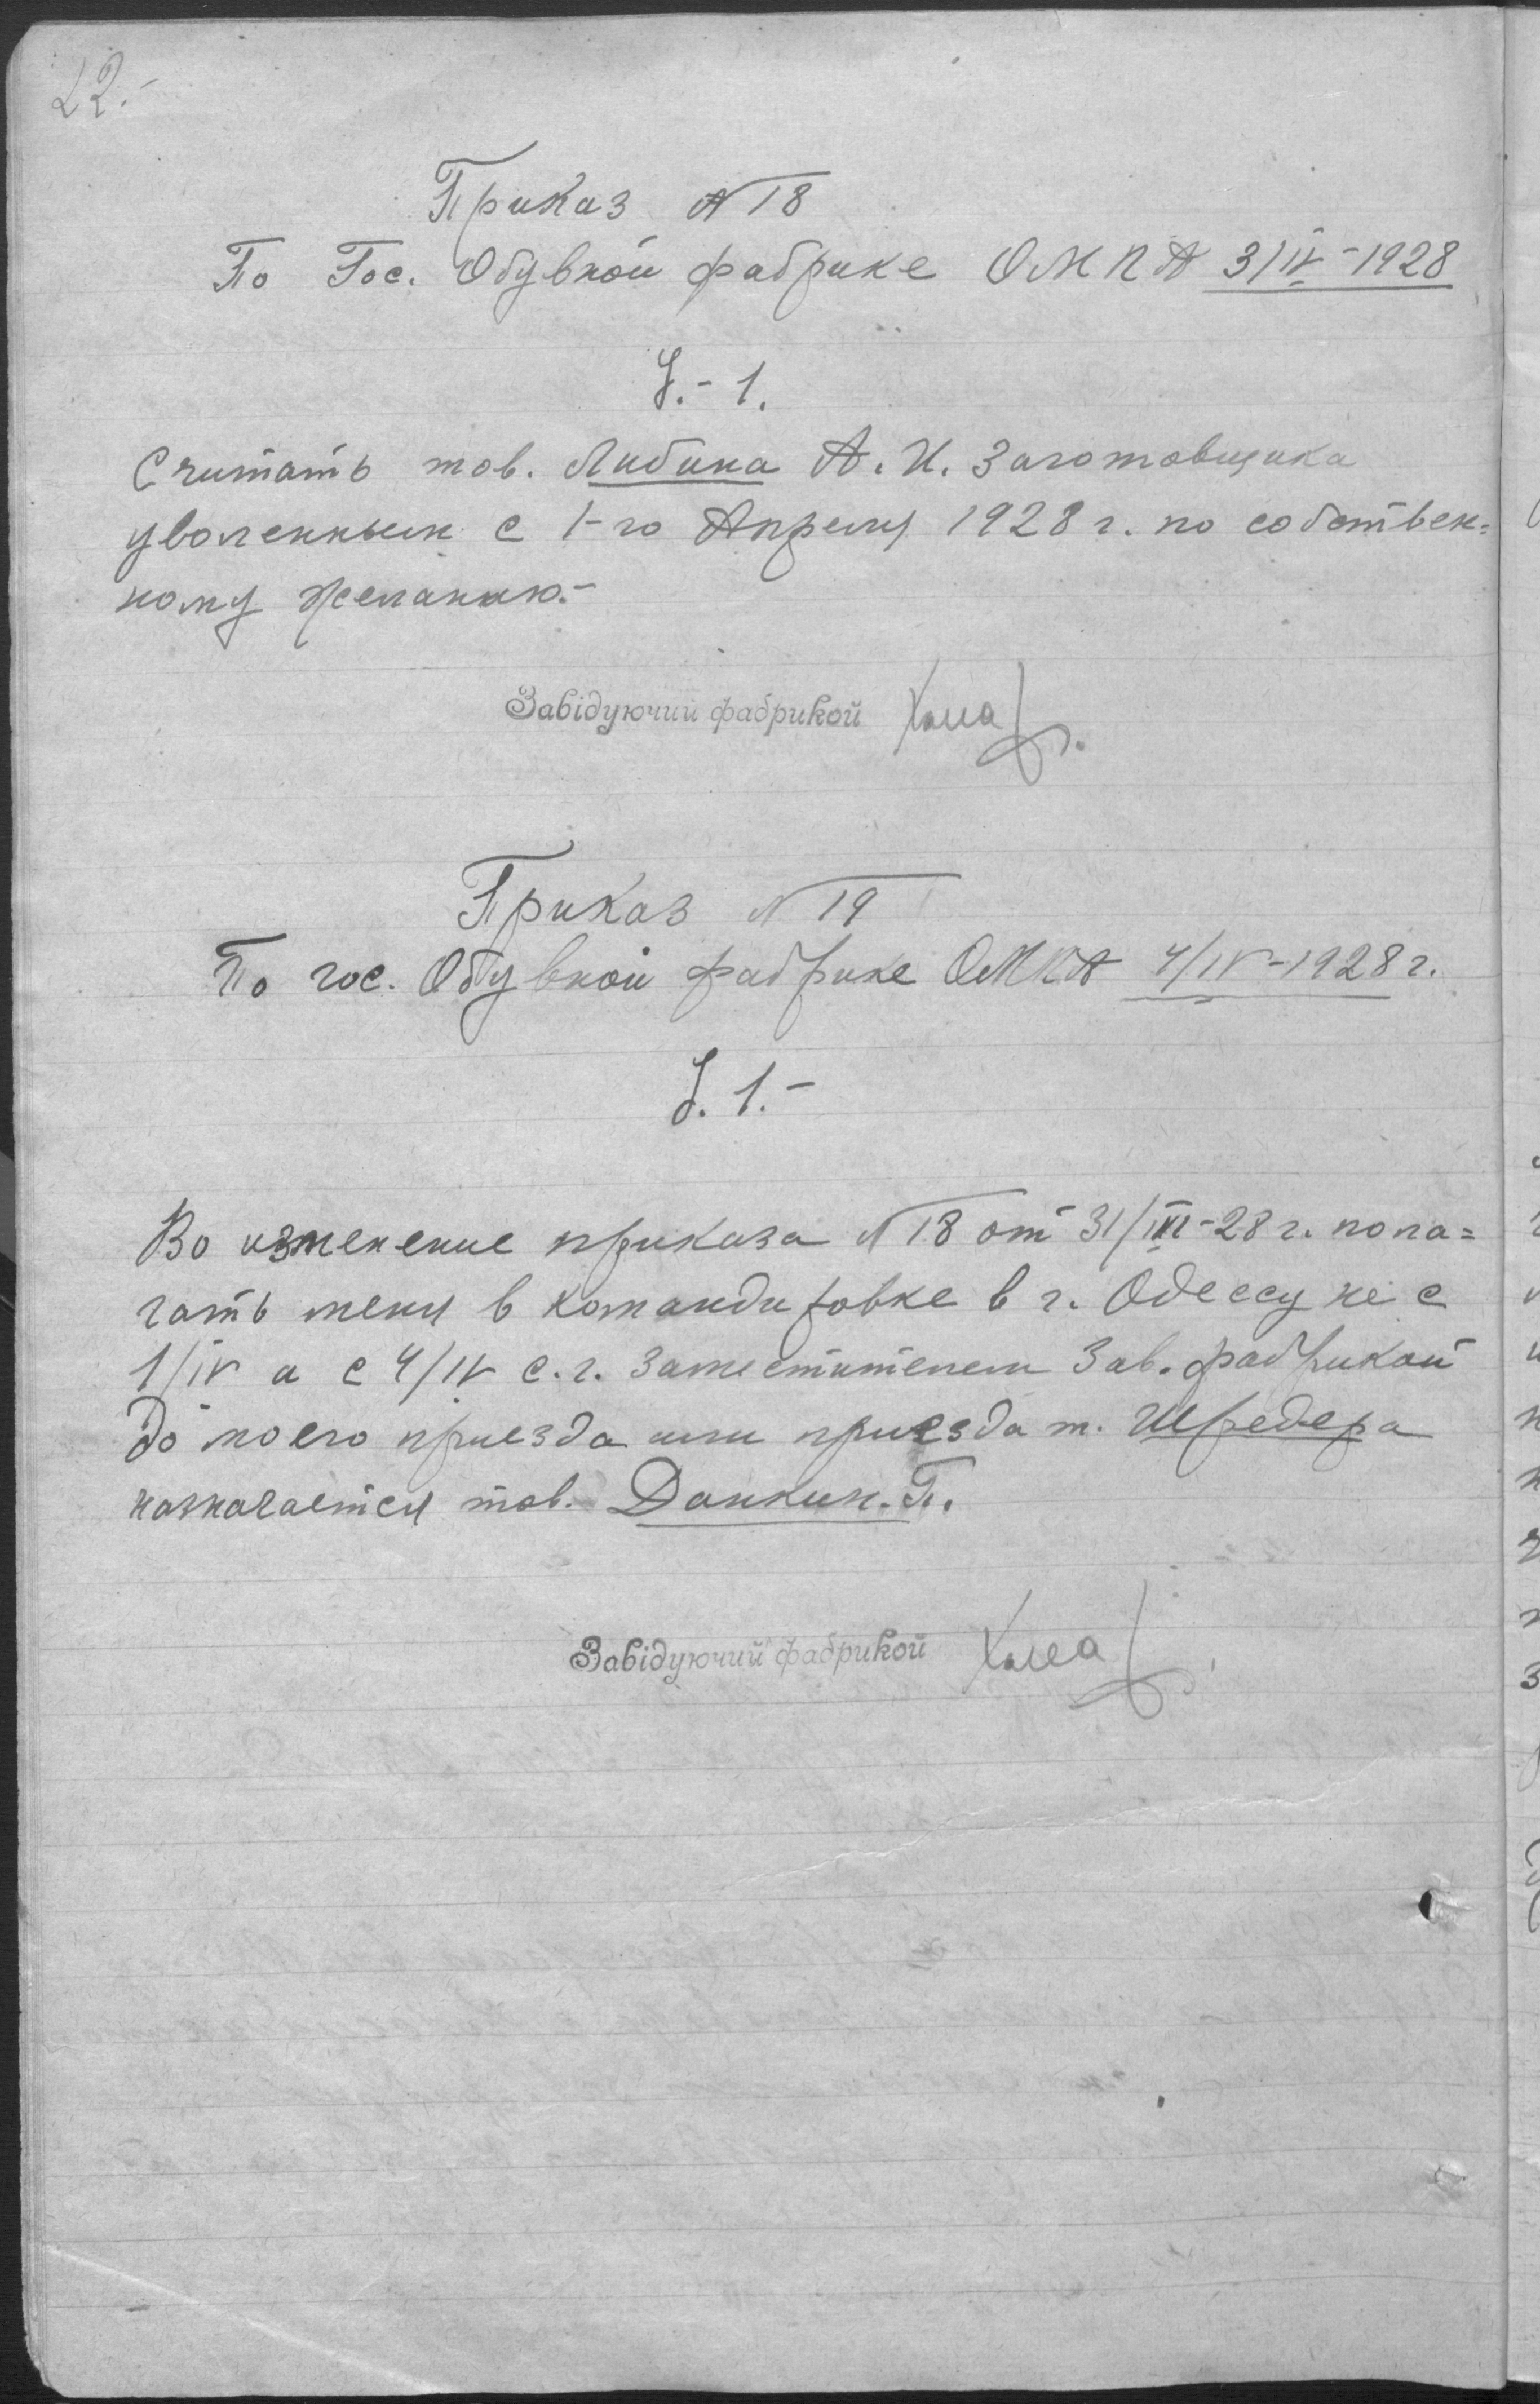 22.-
Приказ № 18
По Гос. Обувной фабрике ОМПА 3/IV-1928
§.- 1.
Считать тов. Либина А. И. Заготовщика
уволенным с 1-го Апреля 1928 г. по собствен=
ному желанию.-
Завідуючий фабрикой
Приказ № 19
По гос. Обувной фабрике ОМПА 4/IV-1928 г.
§. 1.-
Во изменение приказа № 18 от 31/III-28 г. пола=
гать меня в командировке в г. Одессу не с
1/IV а с 4/IV с.г. Заместителем Зав. фабрикой
до моего приезда или приезда т. Шредера
назначается тов. Данкин. П.
Завідуючий фабрикой